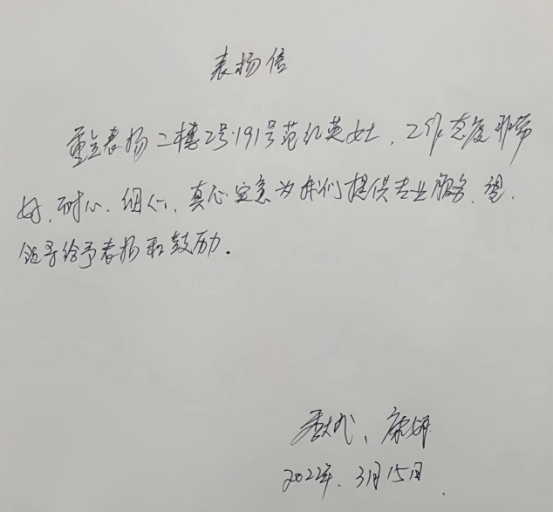 表扬信
重点表扬二楼2号191号范红英女士，工作态度非常
好、耐心、细心、真心实意为我们提供专业服务，望
领导给予表扬和鼓励．
康妍
2022年、3月15日．